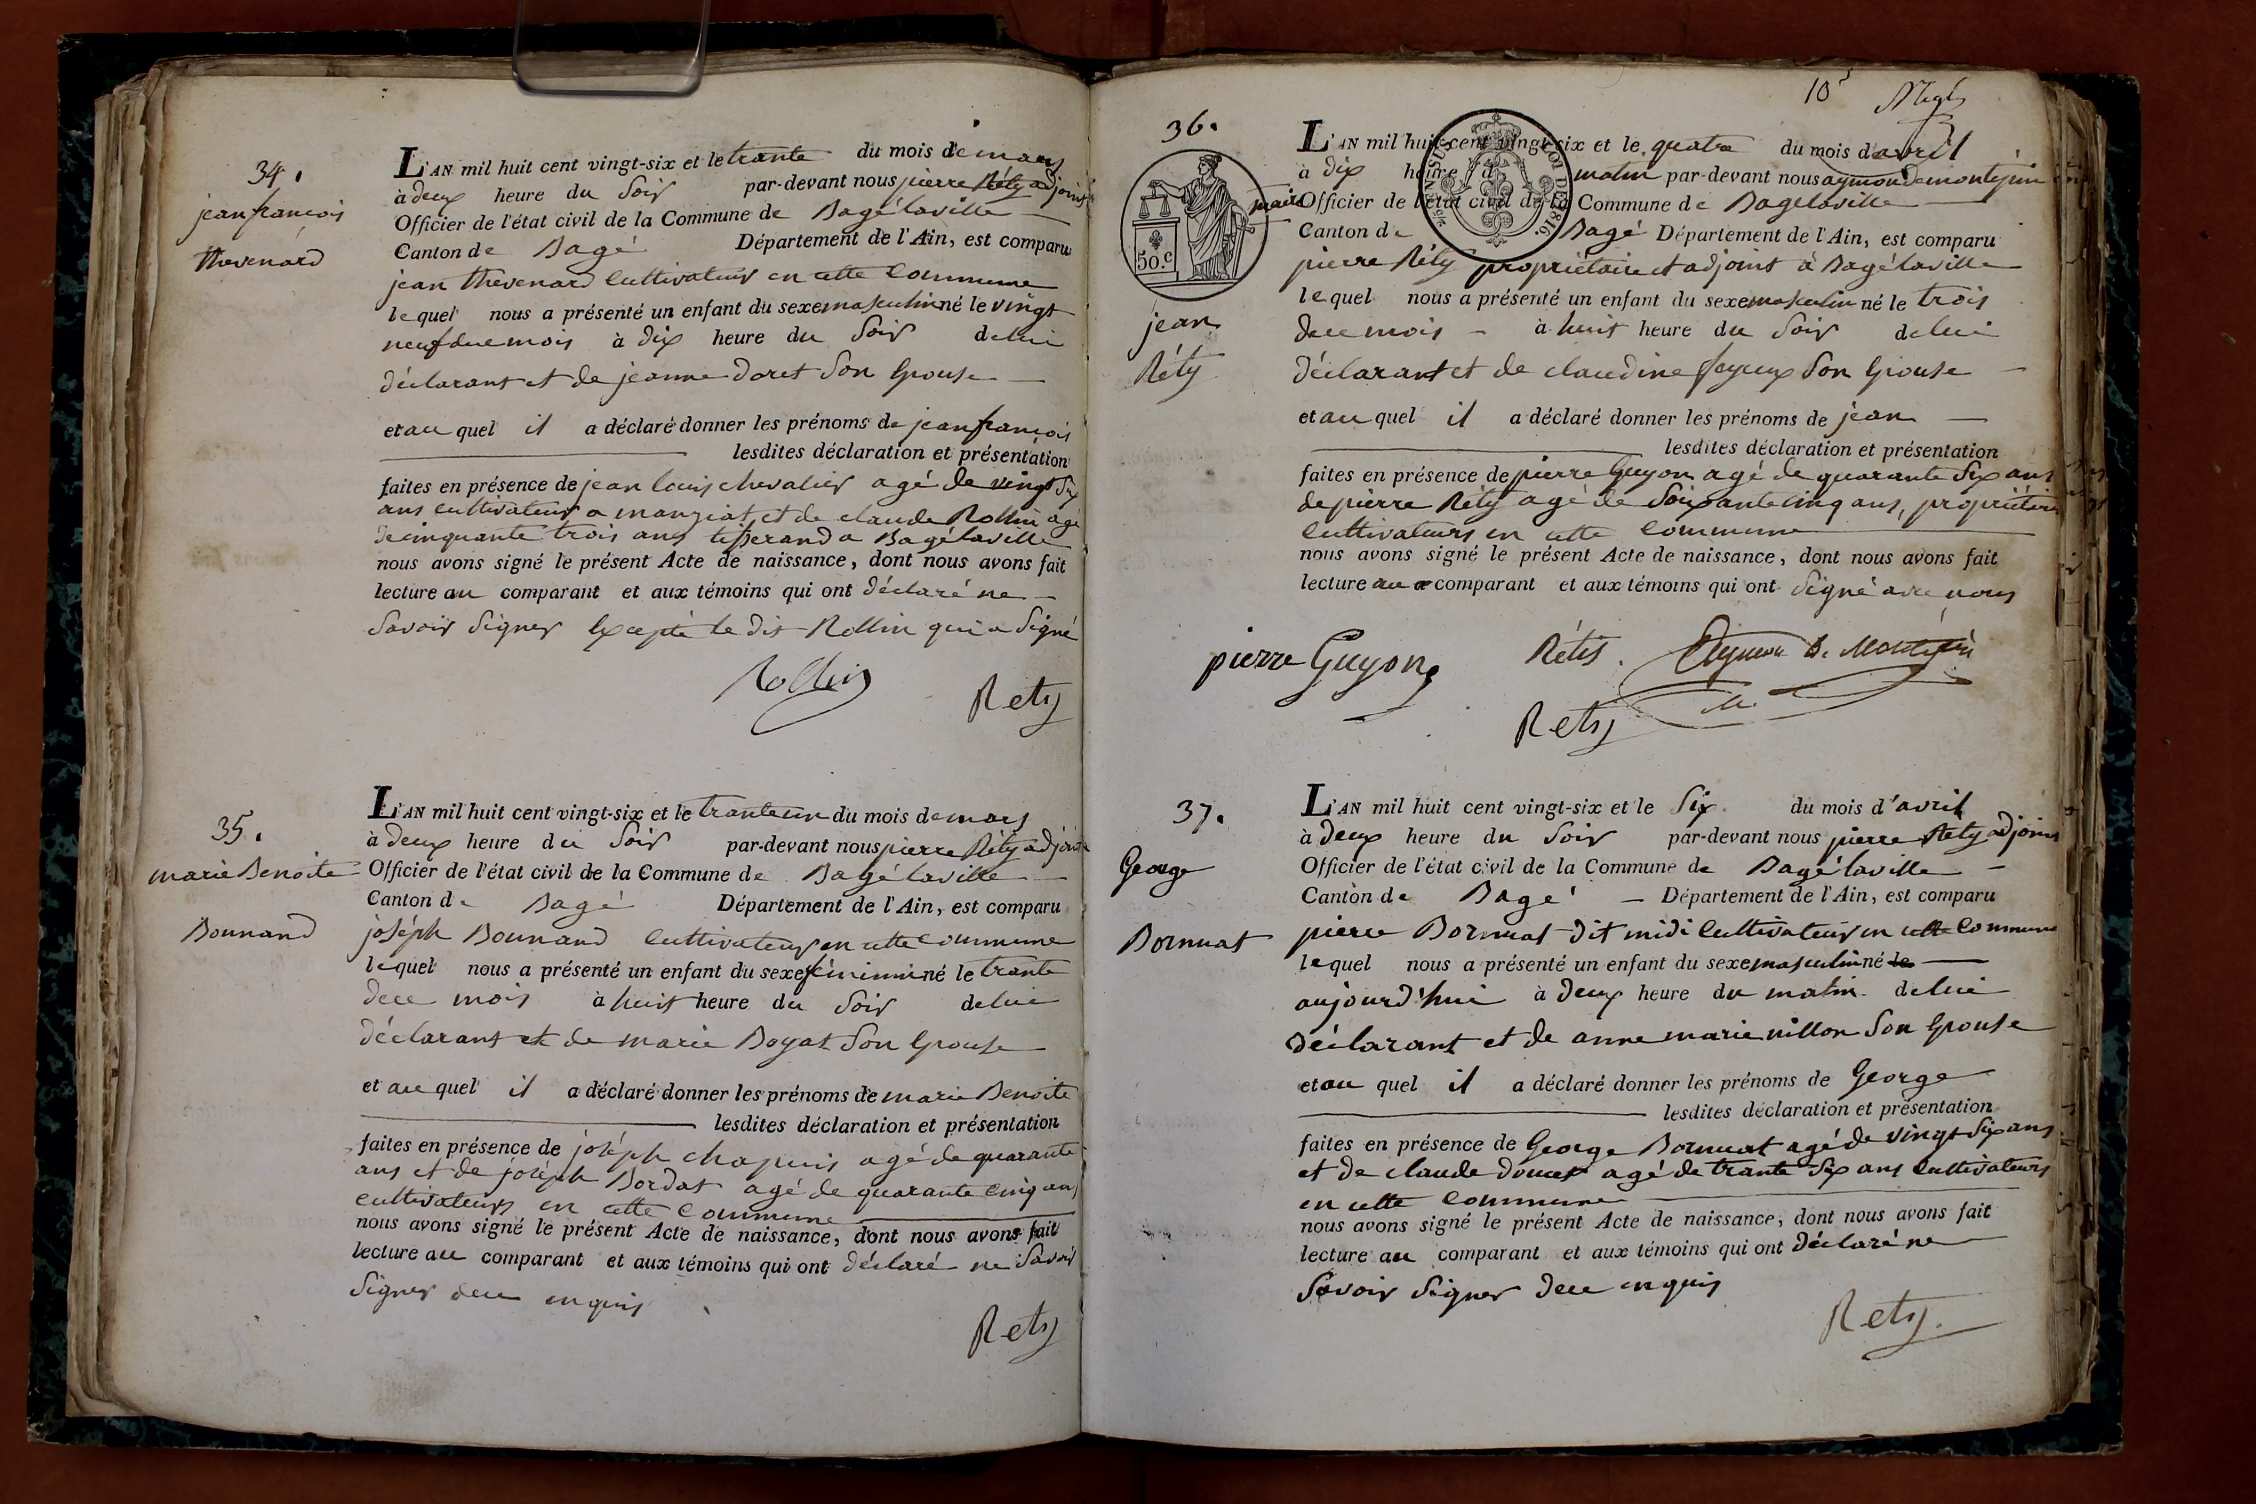 34.
jean françois
thevenard
L'AN mil huit cent vingt-six et le trante du mois de mars
à deux heure du Soir par-devant nous pierre Réty adjoint
Officier de l'état civil de la Commune de Bagé laville
Canton de Bagé Département de l'Ain, est comparu
jean thevenard Cultivateur en cette Commune
lequel nous a présenté un enfant du sexe masculin né le vingt
neuf duce mois à dix heure du Soir de lui
déclarant et de jeanne doret Son Epouse
et au quel il a déclaré donner les prénoms de jean françois
lesdites déclaration et présentation
faites en présence de jean louis chevalier agé de vingt Six
ans cultivateur a manziat et de claude Rollin agé
de cinquante trois ans tisserand a Bagé laville
nous avons signé le présent Acte de naissance, dont nous avons fait
lecture au comparant et aux témoins qui ont déclaré ne
Savoir Signer Excepté le dit Rollin qui a Signé
Rollin
Rety
35.
marie Benoite
Bonnand
L'AN mil huit cent vingt-six et le tranteun du mois de mars
à deux heure du Soir par-devant nous pierre Réty adjoint
Officier de l'état civil de la Commune de Bagé laville
Canton de Bagé Département de l'Ain, est comparu
joséph Bonnand Cultivateur en cette Commune
lequel nous a présenté un enfant du sexe féminin né le trante
duce mois à huit heure du Soir de lui
déclarant et de marie Boyat Son Epouse
et au quel il a déclaré donner les prénoms de marie Benoite
lesdites déclaration et présentation
faites en présence de joséph chapuis agé de quarante
ans et de joséph Bordat agé de quarante Cinq ans
cultivateurs en cette Commune
nous avons signé le présent Acte de naissance, dont nous avons fait
lecture au comparant et aux témoins qui ont déclaré ne Savoir
Signer dece enquis
Rety
10
36.
50.c
jean
Réty
L'AN mil huit cent vingt-six et le quatre du mois d'avril
à dix heure du matin par-devant nous aymon de montépin
maire Officier de l'état civil de la Commune de Bagé laville
Canton de Bagé Département de l'Ain, est comparu
pierre Réty propriétaire et adjoint à Bagé laville
lequel nous a présenté un enfant du sexe masculin né le trois
duce mois à huit heure du Soir de lui
déclarant et de claudine feyeux Son Epouse
et au quel il a déclaré donner les prénoms de jean
lesdites déclaration et présentation
faites en présence de pierre Guyon agé de quarante Six ans
de pierre Réty agé de Soixante cinq ans, propriétaire
Cultivateurs en cette Commune
nous avons signé le présent Acte de naissance, dont nous avons fait
lecture au comparant et aux témoins qui ont Signé avec nous
pierre Guyon
Rétis.
Aymon de Montépin
Rety
37.
George
Bornuat
L'AN mil huit cent vingt-six et le Six du mois d'avril
à deux heure du Soir par-devant nous pierre Réty adjoint
Officier de l'état civil de la Commune de Bagé laville
Canton de Bagé Département de l'Ain, est comparu
pierre Bornuat dit midi Cultivateur en cette Commune
lequel nous a présenté un enfant du sexe masculin né le
aujourd'hui à deux heure du matin de lui
déclarant et de anne marie nillon Son Epouse
et au quel il a déclaré donner les prénoms de George
lesdites déclaration et présentation
faites en présence de George Bornuat agé de vingt Six ans
et de claude doucet agé de trante Six ans Cultivateurs
en cette Commune
nous avons signé le présent Acte de naissance, dont nous avons fait
lecture au comparant et aux témoins qui ont déclaré ne
Savoir Signer dece enquis
Rety.